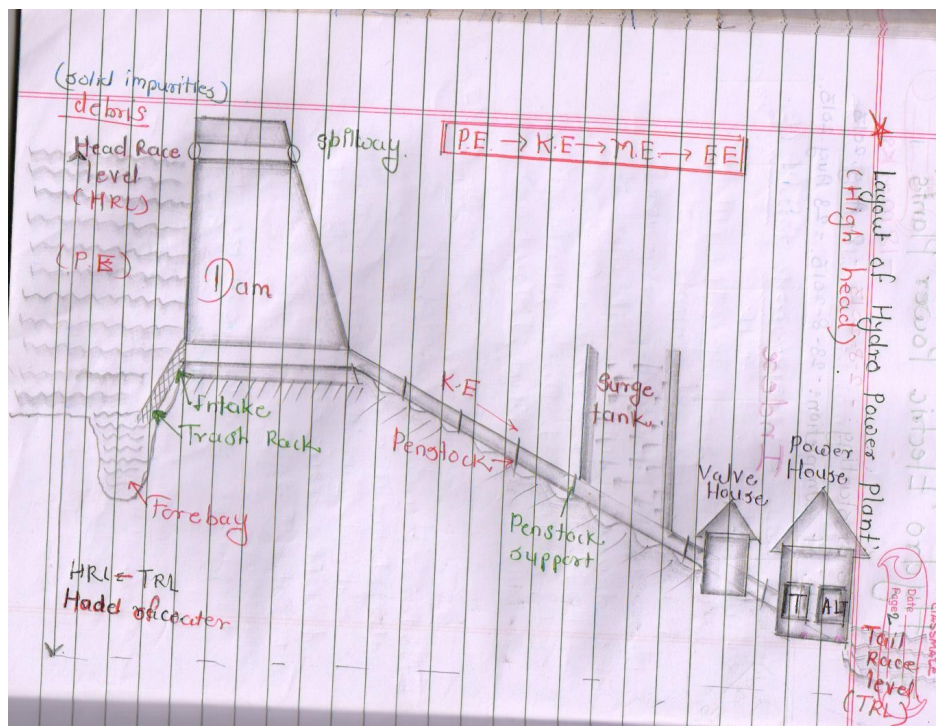 Layout of Hydro power plant
(High head)
(solid impurities)
debris
Head Race
level
(HRL)
(PE)
spilway.
P.E. → K.E → M.E. → EE
Dam
Intake
Trash Rack
Forebay
K.E
Penstock
Surge
tank
Penstock
support
Valve
House
Power
House
T
ALT
HRL ← TRL
Tail
Race
level
(TRL)
classmate
Date
Page 2